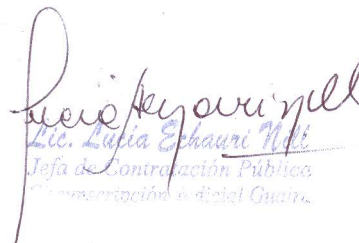 Lic. Lucía Echauri Nill
Jefa de Contratación Pública
Circunscripción Judicial Guairá